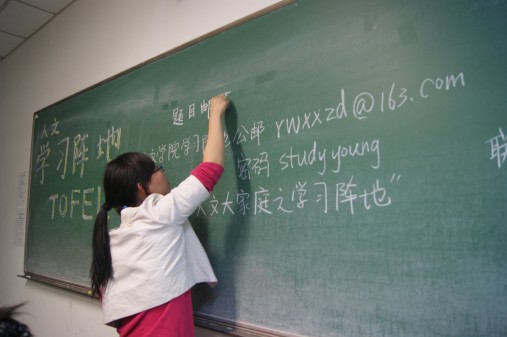 人文
学习阵地
TOFE
题目邮
文学院学习阵地公邮 rwxxzd@163.com
密码 studyyoung
人文大家庭之学习阵地"
联